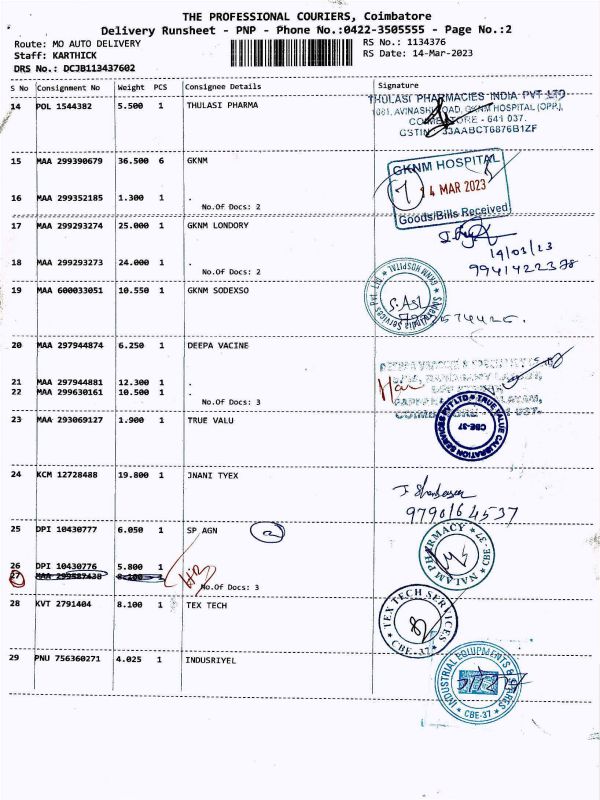 THE PROFESSIONAL COURIERS, Coimbatore
Delivery Runsheet - PNP - Phone No.:0422-3505555 - Page No.:2
Route: MO AUTO DELIVERY RS No.: 1134376
Staff: KARTHICK RS Date: 14-Mar-2023
DRS No.: DCJB113437602
S No Consignment No Weight PCS Consignee Details Signature
14 POL 1544382 5.500 1 THULASI PHARMA
THULASI PHARMACIES INDIA PVT LTD
1081, AVINASHI ROAD, GKNM HOSPITAL (OPP.),
COIMBATORE - 641 037.
GSTIN : 33AABCT6876B1ZF
15 MAA 299390679 36.500 6 GKNM
GKNM HOSPITAL
14 MAR 2023
Goods/Bills Received
16 MAA 299352185 1.300 1 .
No.Of Docs: 2
17 MAA 299293274 25.000 1 GKNM LONDORY
14/03/23
9941422378
18 MAA 299293273 24.000 1 .
No.Of Docs: 2
19 MAA 600033051 10.550 1 GKNM SODEXSO
GKNM HOSPITAL
Services Pvt
20 MAA 297944874 6.250 1 DEEPA VACINE
21 MAA 297944881 12.300 1 .
22 MAA 299630161 10.500 1 .
No.Of Docs: 3
23 MAA 293069127 1.900 1 TRUE VALU
TRUE VALUE CALIBRATION SERVICES PVT LTD
CBE-37
24 KCM 12728488 19.800 1 JNANI TYEX
9790164537
25 DPI 10430777 6.050 1 SP AGN 2
26 DPI 10430776 5.800 1
27 MAA 299587438 8.200 1
No.Of Docs: 3
NALAM PHARMACY
CBE-37
28 KVT 2791404 8.100 1 TEX TECH
TEX TECH SERVICES
CBE-37
29 PNU 756360271 4.025 1 INDUSRIYEL
INDUSTRIAL EQUIPMENTS & SPARES
CBE-37